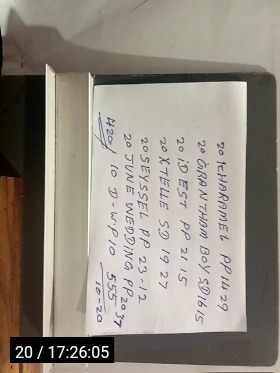 20 KHARAMEL PP 14 29
20 GRANTHAM BOY SD 16 15
20 iD EST PP 21 15
20 XTELLE SD 19 27
20 SEYSSEL PP 23-12
20 JUNE WEDDiNG PP 20 37
420/ 10 D-W-P 10 555
10-20
20 / 17:26:05